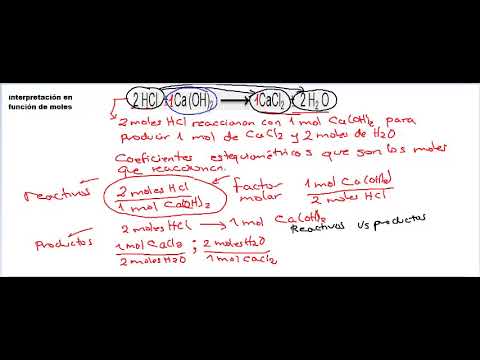 interpretación en
función de moles
2 HCl + 1Ca(OH)₂ → 1CaCl₂ + 2H₂O
2 moles HCl reaccionan con 1 mol Ca(OH)₂ para
producir 1 mol de CaCl₂ y 2 moles de H₂O
Coeficientes estequiométricos que son los moles
que reaccionan.
reactivos 2 moles HCl / 1 mol Ca(OH)₂ factor molar 1 mol Ca(OH)₂ / 2 moles HCl
2 moles HCl → 1 mol Ca(OH)₂
Reactivos Vs productos
Productos 1 mol CaCl₂ / 2 moles H₂O ; 2 moles H₂O / 1 mol CaCl₂